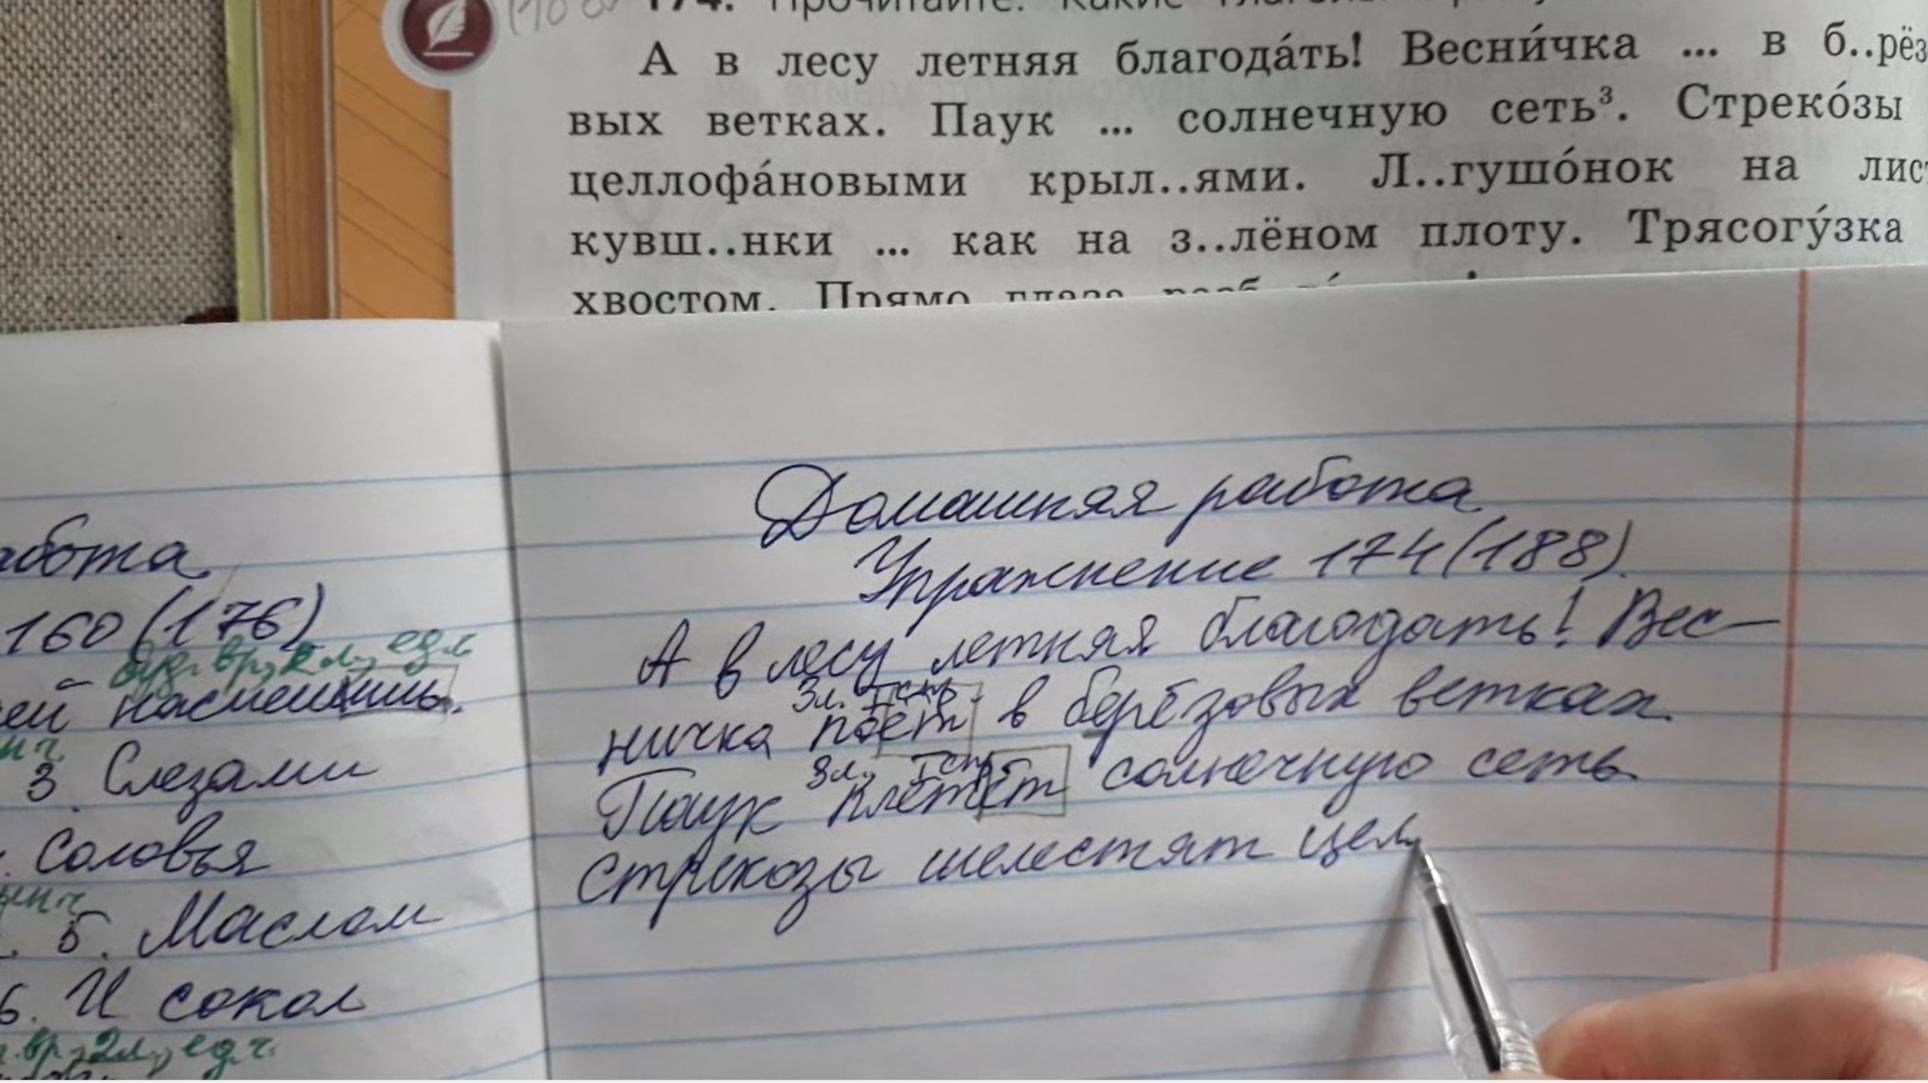 174. Прочитайте. Какие
А в лесу летняя благода́ть! Весни́чка ... в б..рёз
вых ветках. Паук ... солнечную сеть³. Стреко́зы
целлофа́новыми крыл..ями. Л..гушо́нок на лист
кувш..нки ... как на з..лёном плоту. Трясогу́зка
хвостом. Прямо глаза
абота
160 (176)
буд. вр., 2 л., ед.ч.
ей насмешишь.
3. Слезами
Соловья
5. Маслом
6. И сокол
вр., 2л., ед.ч.
Домашняя работа
Упражнение 174 (188).
А в лесу летняя благодать! Вес-
3л. I спр.
ничка поёт в берёзовых ветках.
3л. I спр.
Паук плетёт солнечную сеть.
Стрекозы шелестят цел